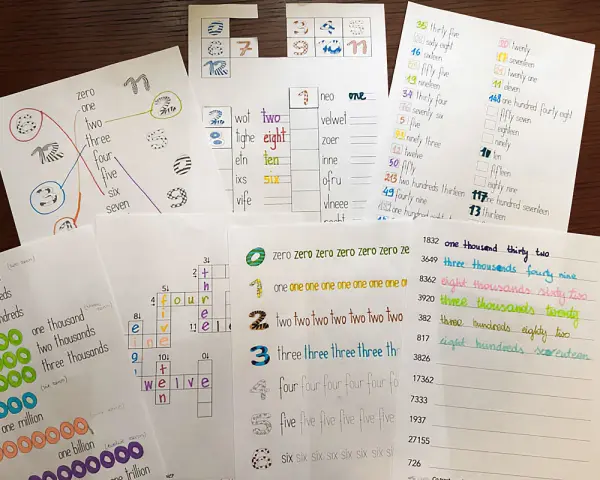 zero
one
two
three
four
five
six
seven
11
2
12
3
9
3 4 5
8 7 9 10 11
12
1 neo one
2 wot two
velwet
8 tighe eight
zoer
etn ten
inne
ixs six
ofru
vife
vineee
35 thirty five
sixty eight
16 sixteen
fifty five
19 nineteen
34 thirty four
seventy six
5 five
ninety three
12 twelve
50 fifty
213 two hundreds thirteen
49 fourty nine
20 twenty
17 seventeen
twenty one
11 eleven
148 one hundred fourty eight
seven
eighteen
ninety
10 ten
fifteen
eighty nine
117 one hundred seventeen
13 thirteen
one thousand
two thousands
three thousands
one million
one billion
one trillion
three
four
five
nine
ten
welve
0 zero zero zero zero zero zero ze
1 one one one one one one one
2 two two two two two two two
3 three three three three th
4 four four four four four fo
5 five five five five five f
6 six six six six six six six
1832 one thousand thirty two
3649 three thousands fourty nine
8362 eight thousands sixty two
3920 three thousands twenty
382 three hundreds eighty two
817 eight hundreds seventeen
3826
17362
7333
1937
27155
726